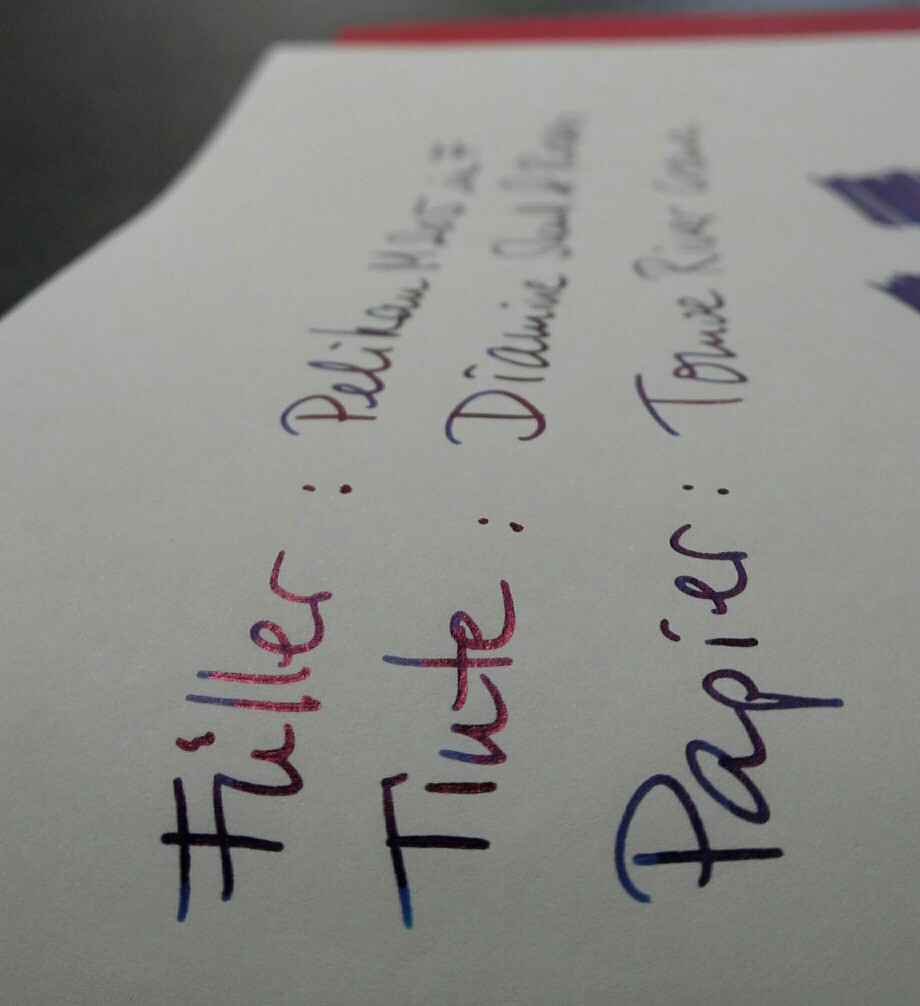 Füller: Pelikan M205
Tinte: Diamine
Papier: Tomoe River